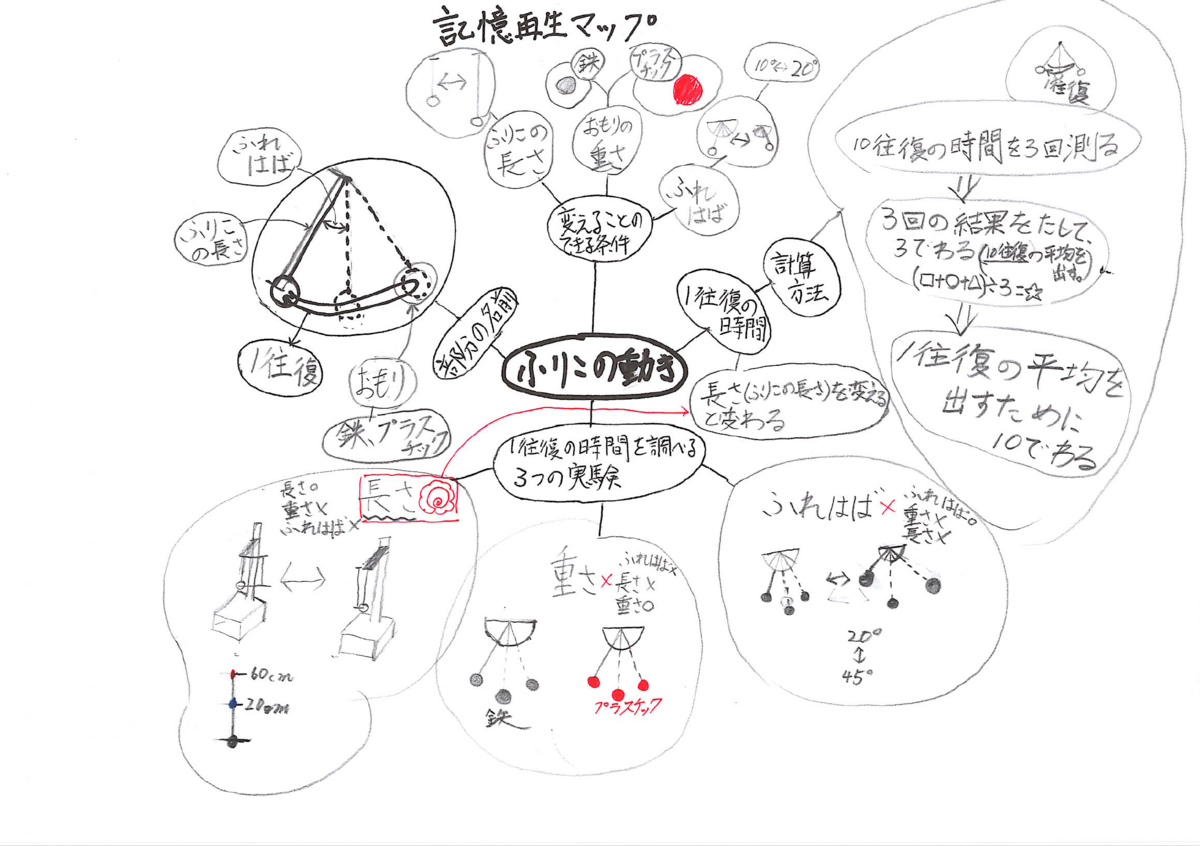 記憶再生マップ
鉄
プラス
チック
10°↔20°
ふりこの
長さ
おもりの
重さ
ふれ
はば
変えることの
できる条件
ふれ
はば
ふりこ
の長さ
1往復
おもり
鉄、プラス
チック
部分の名前
ふりこの動き
1往復の
時間
計算
方法
長さ(ふりこの長さ)を変える
と変わる
1往復
10往復の時間を3回測る
3回の結果をたして、
3でわる(10往復の平均を
出す。
(□+○+△)÷3=☆
1往復の平均を
出すために
10でわる
1往復の時間を調べる
3つの実験
長さ
長さ○
重さ×
ふれはば×
60cm
20cm
重さ×
ふれはば×
長さ×
重さ○
鉄
プラスチック
ふれはば×
ふれはば○
重さ×
長さ×
20°
↕
45°